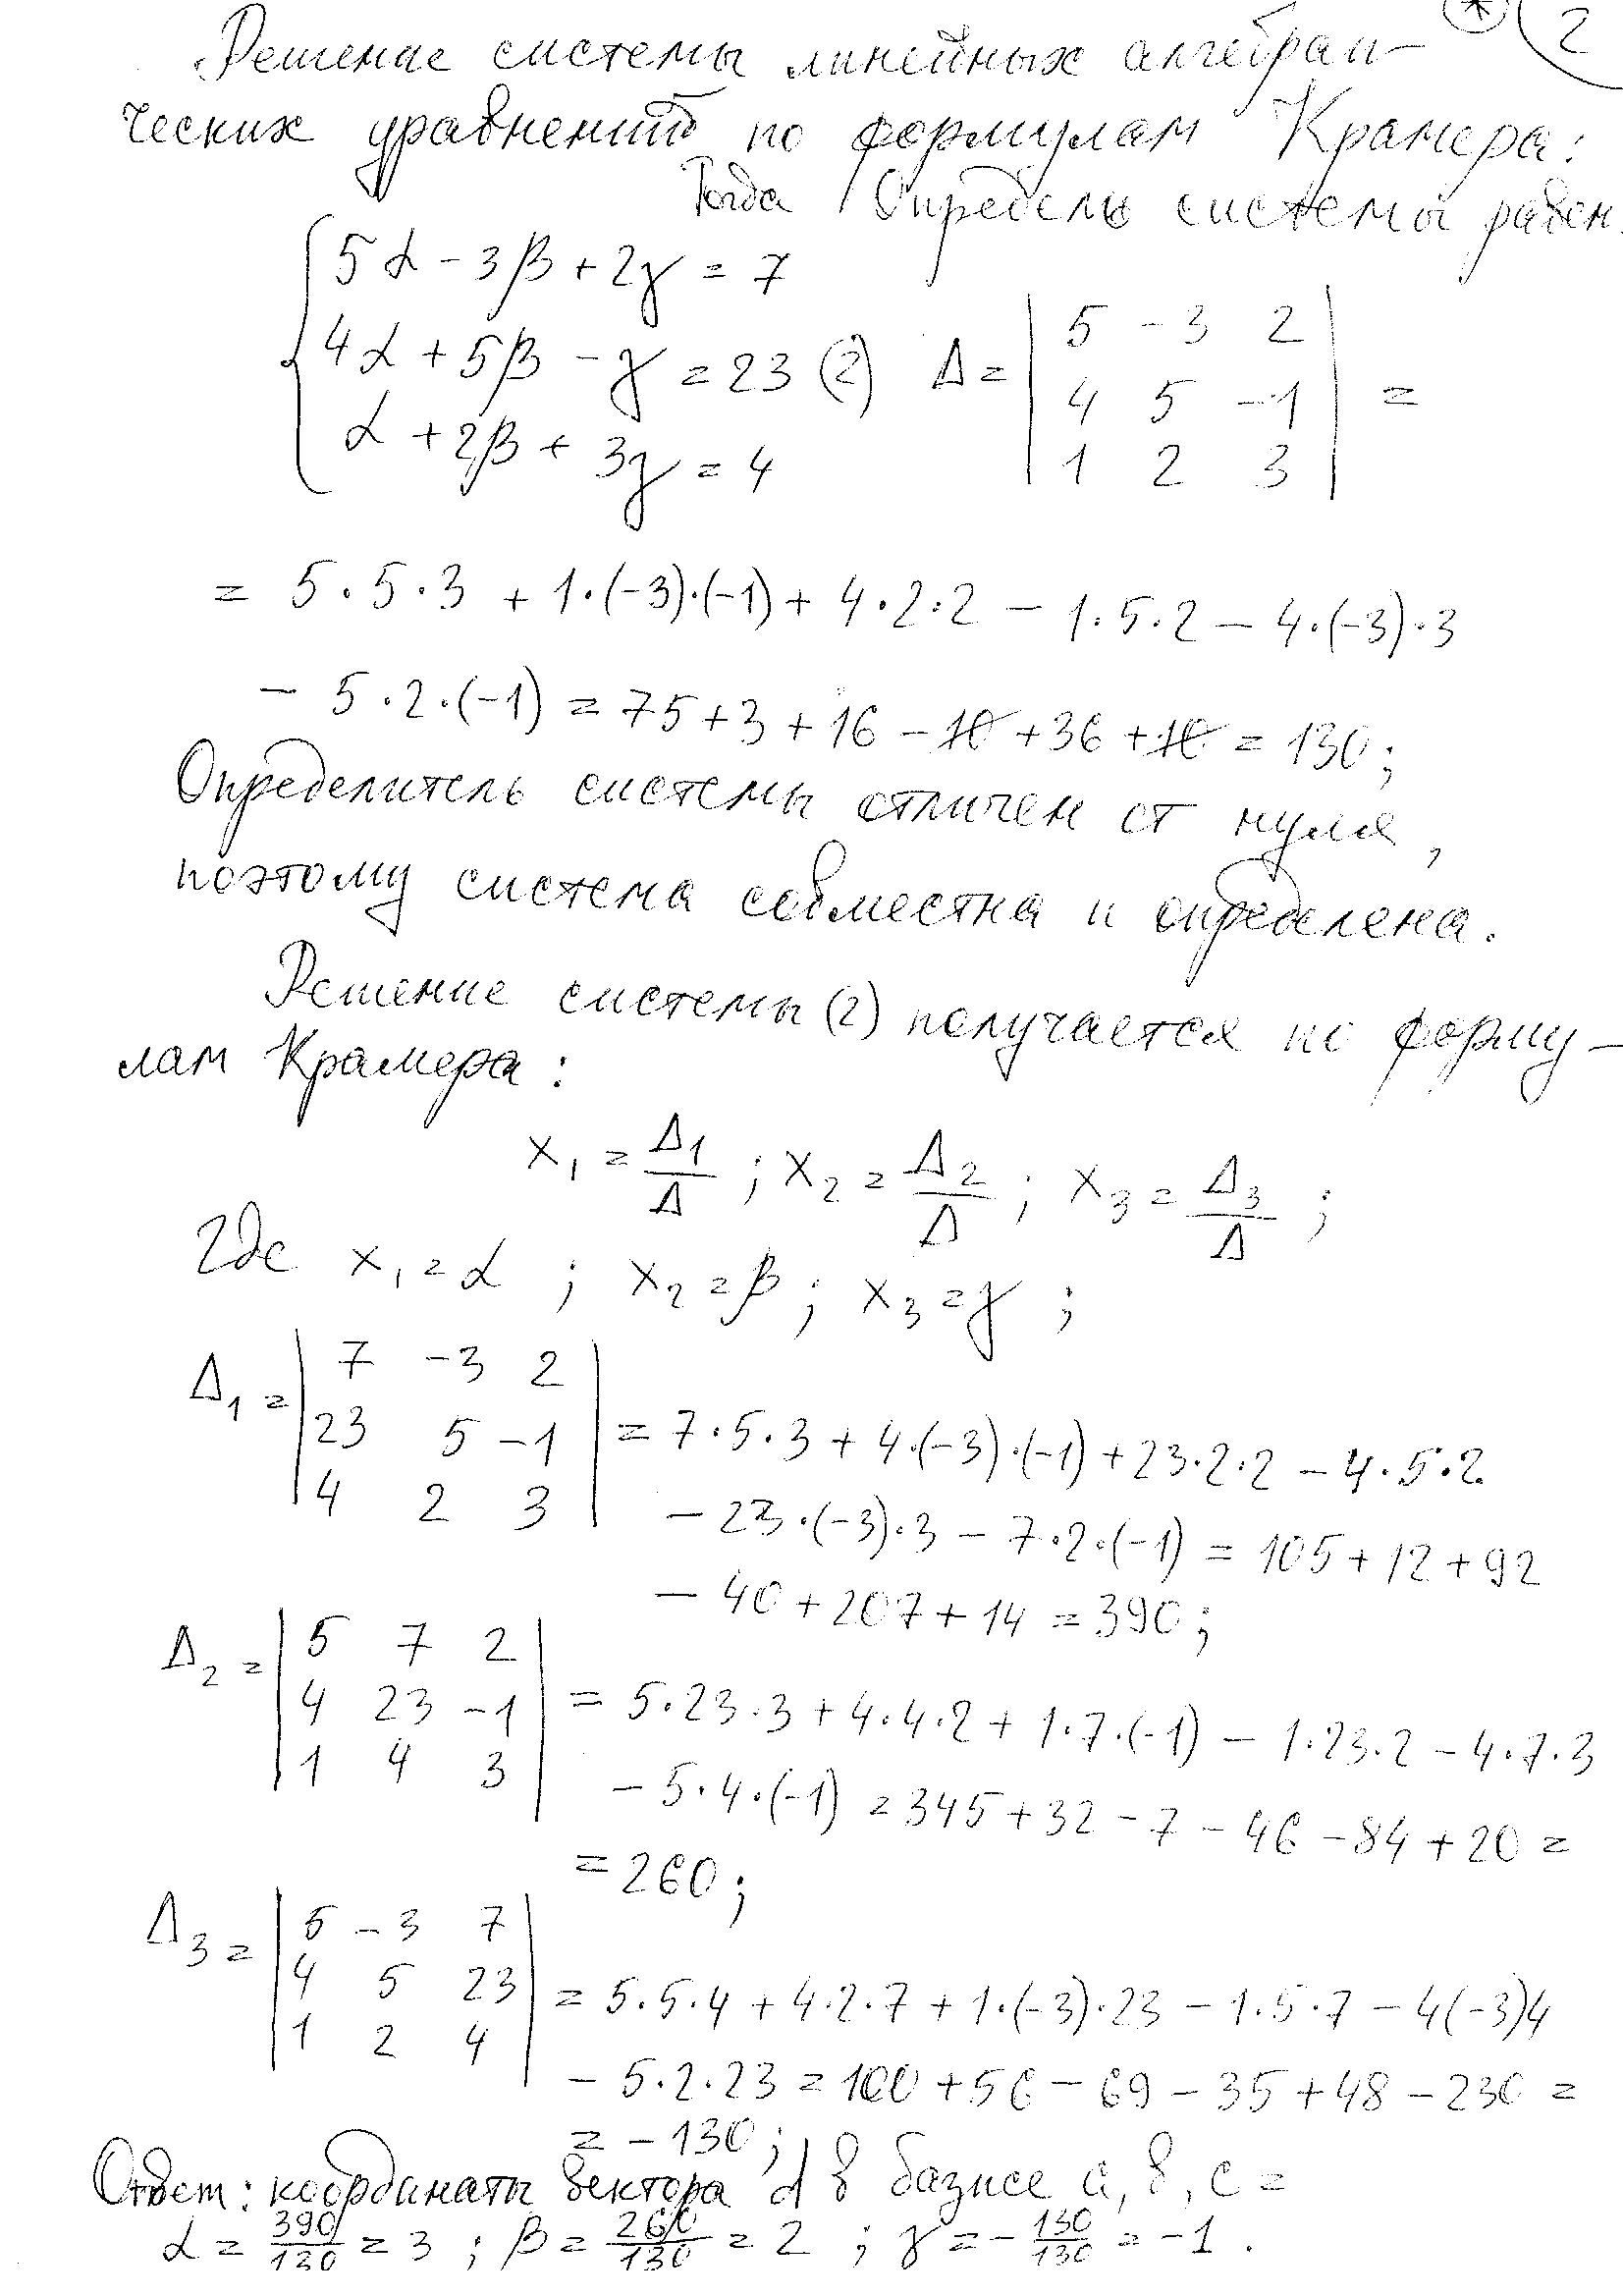 * 2
Решение системы линейных алгебраи-
ческих уравнений по формулам Крамера:
Тогда Определь системы равен.
5α - 3β + 2γ = 7
4α + 5β - γ = 23 (2) Δ = | 5 -3 2 | =
α + 2β + 3γ = 4 | 4 5 -1 |
| 1 2 3 |
= 5·5·3 + 1·(-3)·(-1) + 4·2·2 - 1·5·2 - 4·(-3)·3
- 5·2·(-1) = 75 + 3 + 16 - 10 + 36 + 10 = 130;
Определитель системы отличен от нуля,
поэтому система совместна и определена.
Решение системы (2) получается по форму-
лам Крамера:
x₁ = Δ1/Δ ; x₂ = Δ2/Δ ; x₃ = Δ3/Δ ;
где x₁ = α ; x₂ = β ; x₃ = γ ;
Δ₁ = | 7 -3 2 |
| 23 5 -1 | = 7·5·3 + 4·(-3)·(-1) + 23·2·2 - 4·5·2
| 4 2 3 | - 23·(-3)·3 - 7·2·(-1) = 105 + 12 + 92
- 40 + 207 + 14 = 390;
Δ₂ = | 5 7 2 |
| 4 23 -1 | = 5·23·3 + 4·4·2 + 1·7·(-1) - 1·23·2 - 4·7·3
| 1 4 3 | - 5·4·(-1) = 345 + 32 - 7 - 46 - 84 + 20 =
= 260;
Δ₃ = | 5 -3 7 |
| 4 5 23 | = 5·5·4 + 4·2·7 + 1·(-3)·23 - 1·5·7 - 4(-3)4
| 1 2 4 | - 5·2·23 = 100 + 56 - 69 - 35 + 48 - 230 =
= -130;
Ответ: координаты вектора d в базисе a, b, c =
α = 390/130 = 3 ; β = 260/130 = 2 ; γ = - 130/130 = -1 .